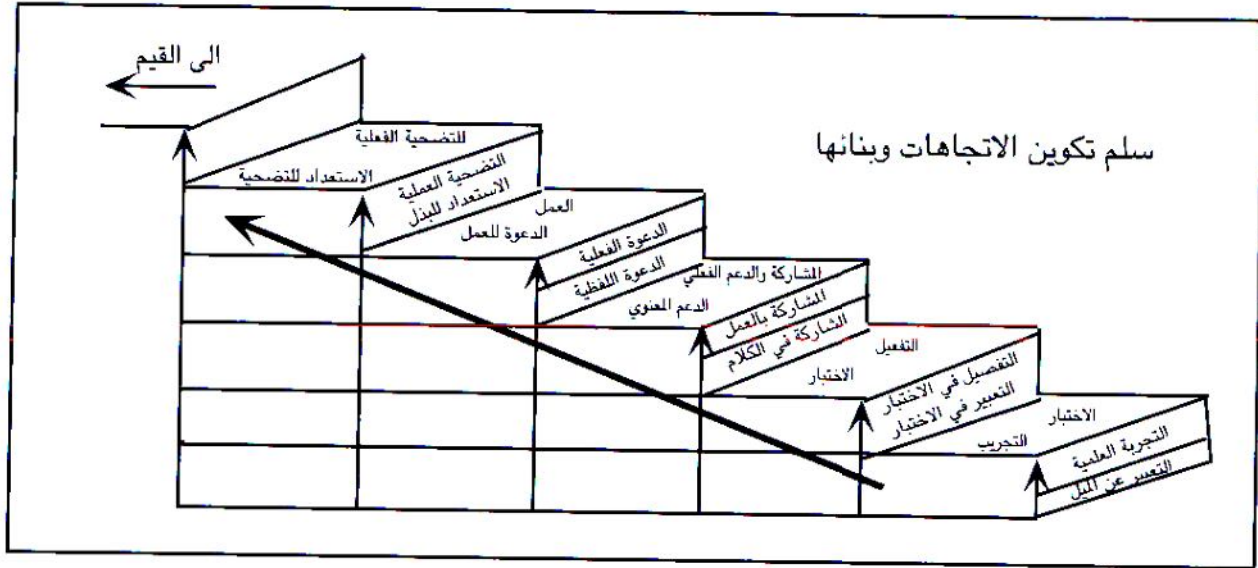 سلم تكوين الاتجاهات وبنائها
الى القيم
للتضحية الفعلية
الاستعداد للتضحية
التضحية العملية
الاستعداد للبذل
العمل
الدعوة للعمل
الدعوة الفعلية
الدعوة اللفظية
المشاركة والدعم الفعلي
الدعم المعنوي
المشاركة بالعمل
الشاركة في الكلام
التفعيل
الاختبار
التفصيل في الاختبار
التعبير في الاختبار
الاختبار
التجريب
التجربة العلمية
التعبير عن الميل